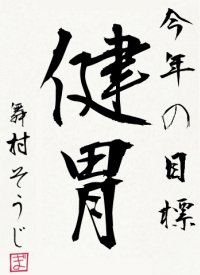 今年の目標
健胃
舞村そうじ
ま